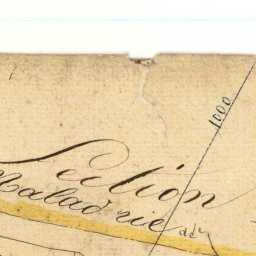 1000
Section
Maladrie